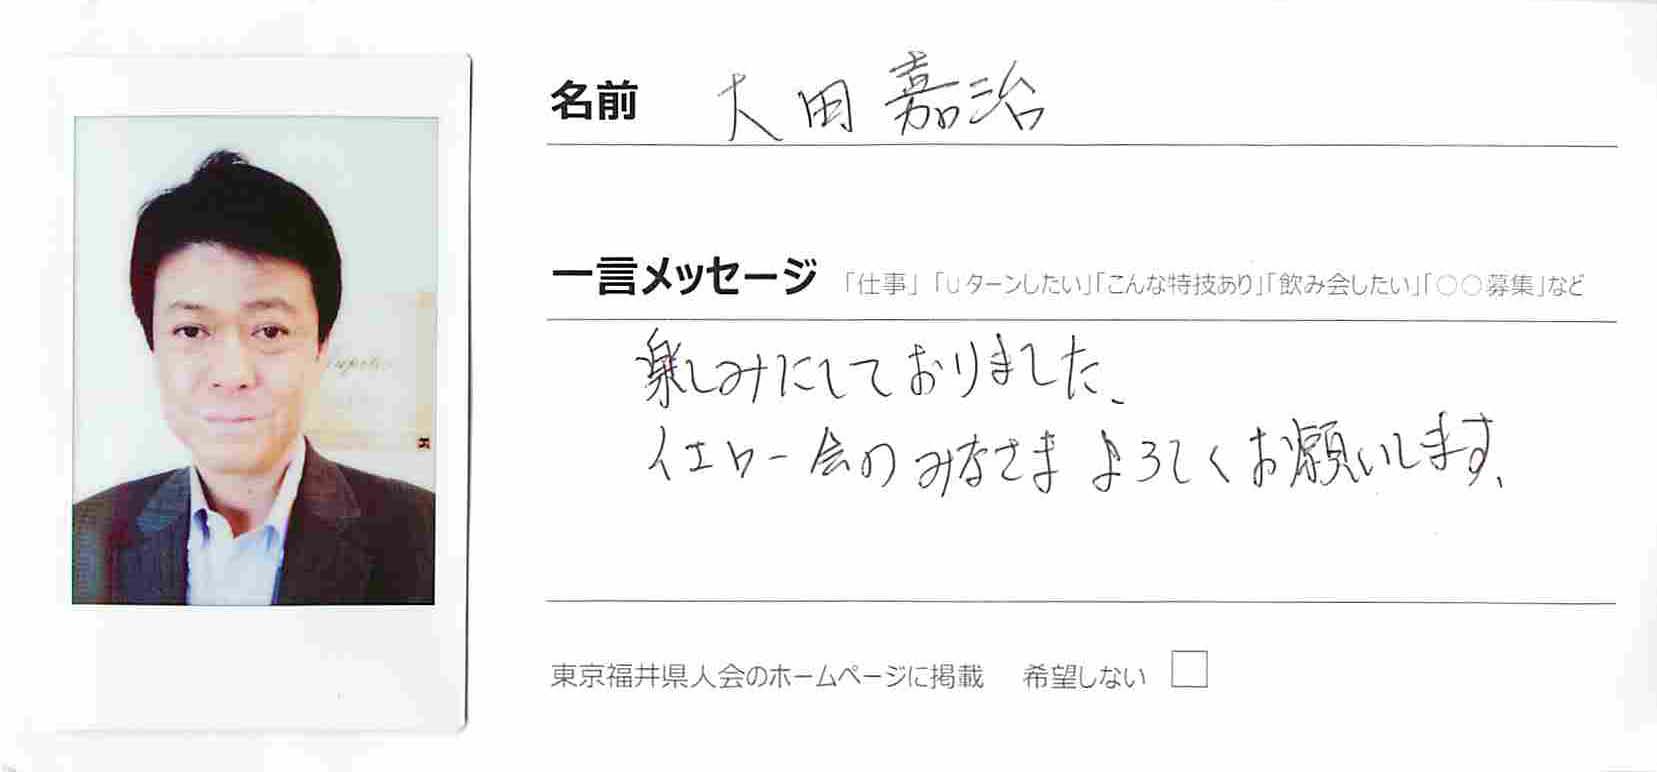 名前 大田 嘉治
一言メッセージ 「仕事」「Uターンしたい」「こんな特技あり」「飲み会したい」「○○募集」など
楽しみにしておりました、
イエロー会のみなさま よろしくお願いします、
東京福井県人会のホームページに掲載 希望しない □